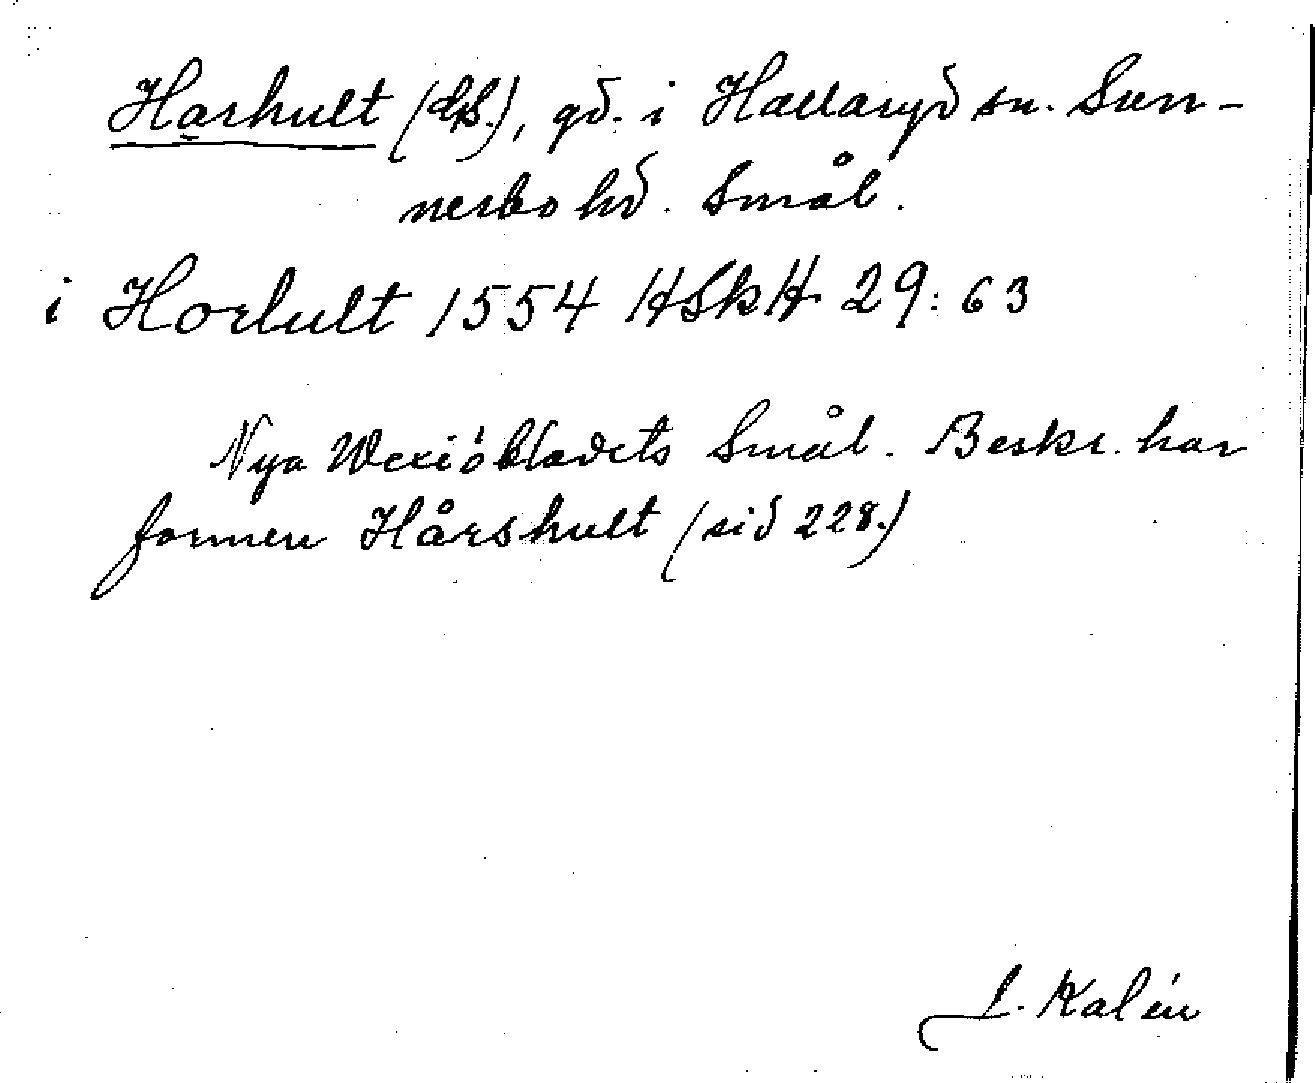 Harhult (GS.), gd. i Hallaryd sn. Sun-
nerbo hd. Smål.
i Horhult 1554 HSkH 29:63
Nya Wexiöbladets Smål. Beskr. har
formen Hårshult (sid 228.)
J. Kalén